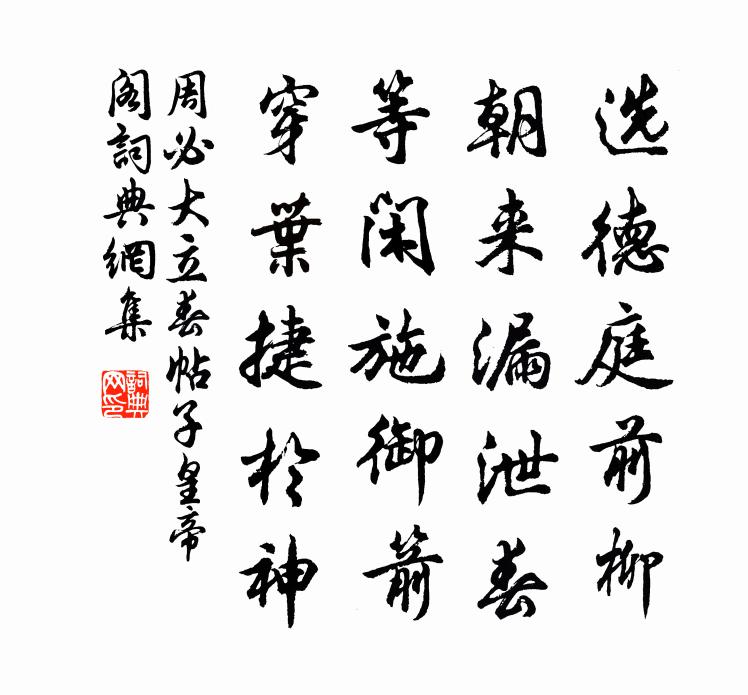 选德庭前柳
朝来漏泄春
等闲施御箭
穿葉捷於神
周必大立春帖子皇帝
阁詞典網集
詞典
网印